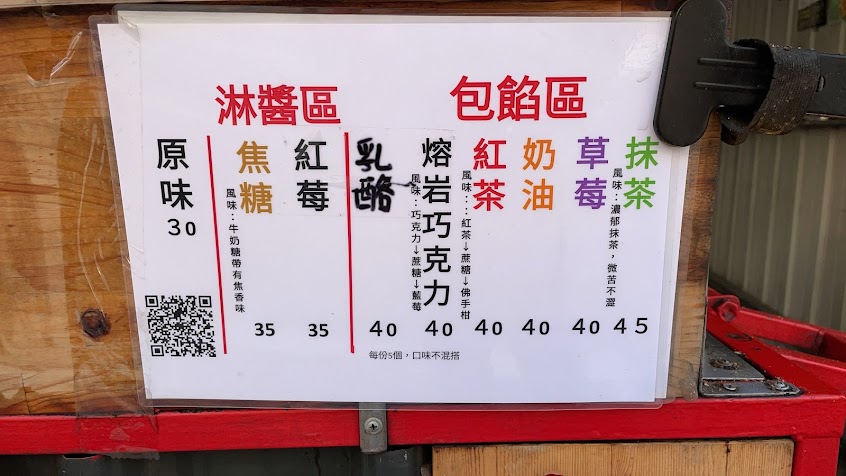 包餡區
淋醬區
抹茶
風味：濃郁抹茶，微苦不澀
45
草莓
40
奶油
40
紅茶
風味：：紅茶→蔗糖→佛手柑
40
熔岩巧克力
風味：巧克力→蔗糖→藍莓
40
乳酪
40
紅莓
35
焦糖
風味：牛奶糖帶有焦香味
35
原味
30
每份5個，口味不混搭